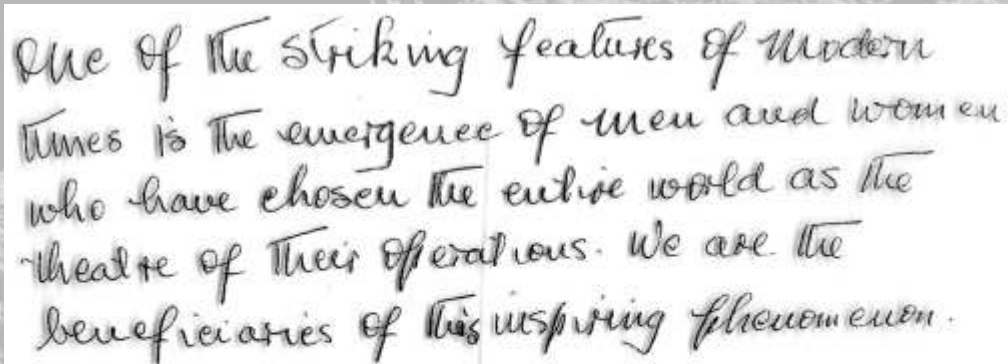 One of the striking features of modern
times is the emergence of men and women
who have chosen the entire world as the
theatre of their operations. We are the
beneficiaries of this inspiring phenomenon.